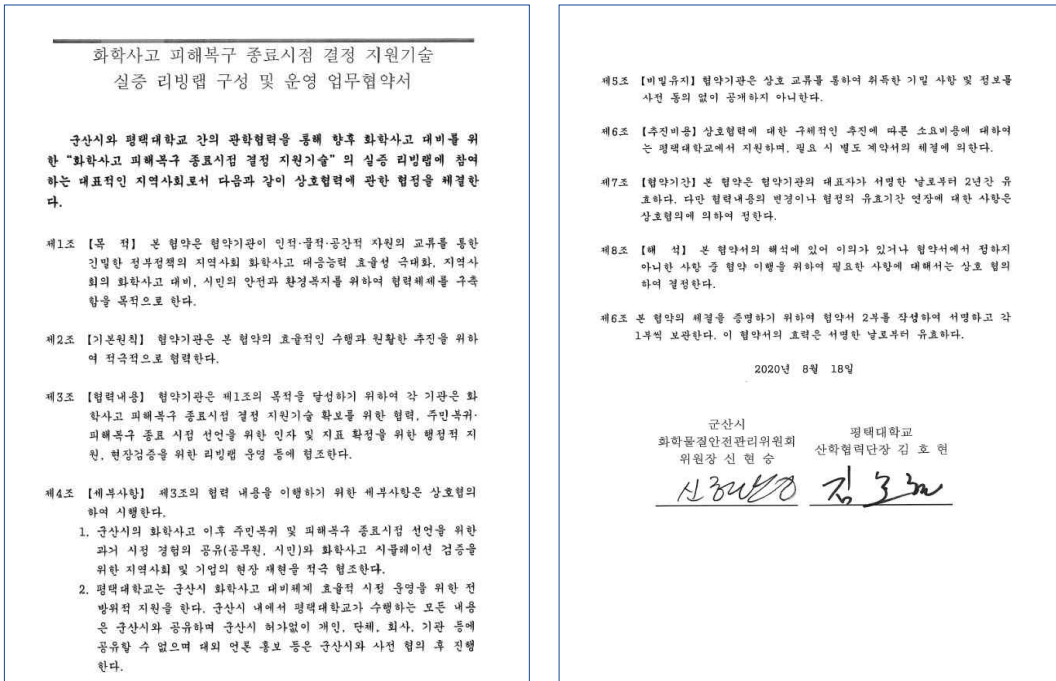 화학사고 피해복구 종료시점 결정 지원기술
실증 리빙랩 구성 및 운영 업무협약서
군산시와 평택대학교 간의 관학협력을 통해 향후 화학사고 대비를 위
한 “화학사고 피해복구 종료시점 결정 지원기술”의 실증 리빙랩에 참여
하는 대표적인 지역사회로서 다음과 같이 상호협력에 관한 협정을 체결한
다.
제1조 【목 적】 본 협약은 협약기관이 인적·물적·공간적 자원의 교류를 통한
긴밀한 정부정책의 지역사회 화학사고 대응능력 효율성 극대화, 지역사
회의 화학사고 대비, 시민의 안전과 환경복지를 위하여 협력체제를 구축
함을 목적으로 한다.
제2조 【기본원칙】 협약기관은 본 협약의 효율적인 수행과 원활한 추진을 위하
여 적극적으로 협력한다.
제3조 【협력내용】 협약기관은 제1조의 목적을 달성하기 위하여 각 기관은 화
학사고 피해복구 종료시점 결정 지원기술 확보를 위한 협력, 주민복귀·
피해복구 종료 시점 선언을 위한 인자 및 지표 확정을 위한 행정적 지
원, 현장검증을 위한 리빙랩 운영 등에 협조한다.
제4조 【세부사항】 제3조의 협력 내용을 이행하기 위한 세부사항은 상호협의
하여 시행한다.
1. 군산시의 화학사고 이후 주민복귀 및 피해복구 종료시점 선언을 위한
과거 시정 경험의 공유(공무원, 시민)와 화학사고 시뮬레이션 검증을
위한 지역사회 및 기업의 현장 재현을 적극 협조한다.
2. 평택대학교는 군산시 화학사고 대비체계 효율적 시정 운영을 위한 전
방위적 지원을 한다. 군산시 내에서 평택대학교가 수행하는 모든 내용
은 군산시와 공유하며 군산시 허가없이 개인, 단체, 회사, 기관 등에
공유할 수 없으며 대외 언론 홍보 등은 군산시와 사전 협의 후 진행
한다.
제5조 【비밀유지】 협약기관은 상호 교류를 통하여 취득한 기밀 사항 및 정보를
사전 동의 없이 공개하지 아니한다.
제6조 【추진비용】 상호협력에 대한 구체적인 추진에 따른 소요비용에 대하여
는 평택대학교에서 지원하며, 필요 시 별도 계약서의 체결에 의한다.
제7조 【협약기간】 본 협약은 협약기관의 대표자가 서명한 날로부터 2년간 유
효하다. 다만 협력내용의 변경이나 협정의 유효기간 연장에 대한 사항은
상호협의에 의하여 정한다.
제8조 【해 석】 본 협약서의 해석에 있어 이의가 있거나 협약서에서 정하지
아니한 사항 중 협약 이행을 위하여 필요한 사항에 대해서는 상호 협의
하여 결정한다.
제6조 본 협약의 체결을 증명하기 위하여 협약서 2부를 작성하여 서명하고 각
1부씩 보관한다. 이 협약서의 효력은 서명한 날로부터 유효하다.
2020년 8월 18일
군산시
화학물질안전관리위원회
위원장 신 현 승
평택대학교
산학협력단장 김 호 현